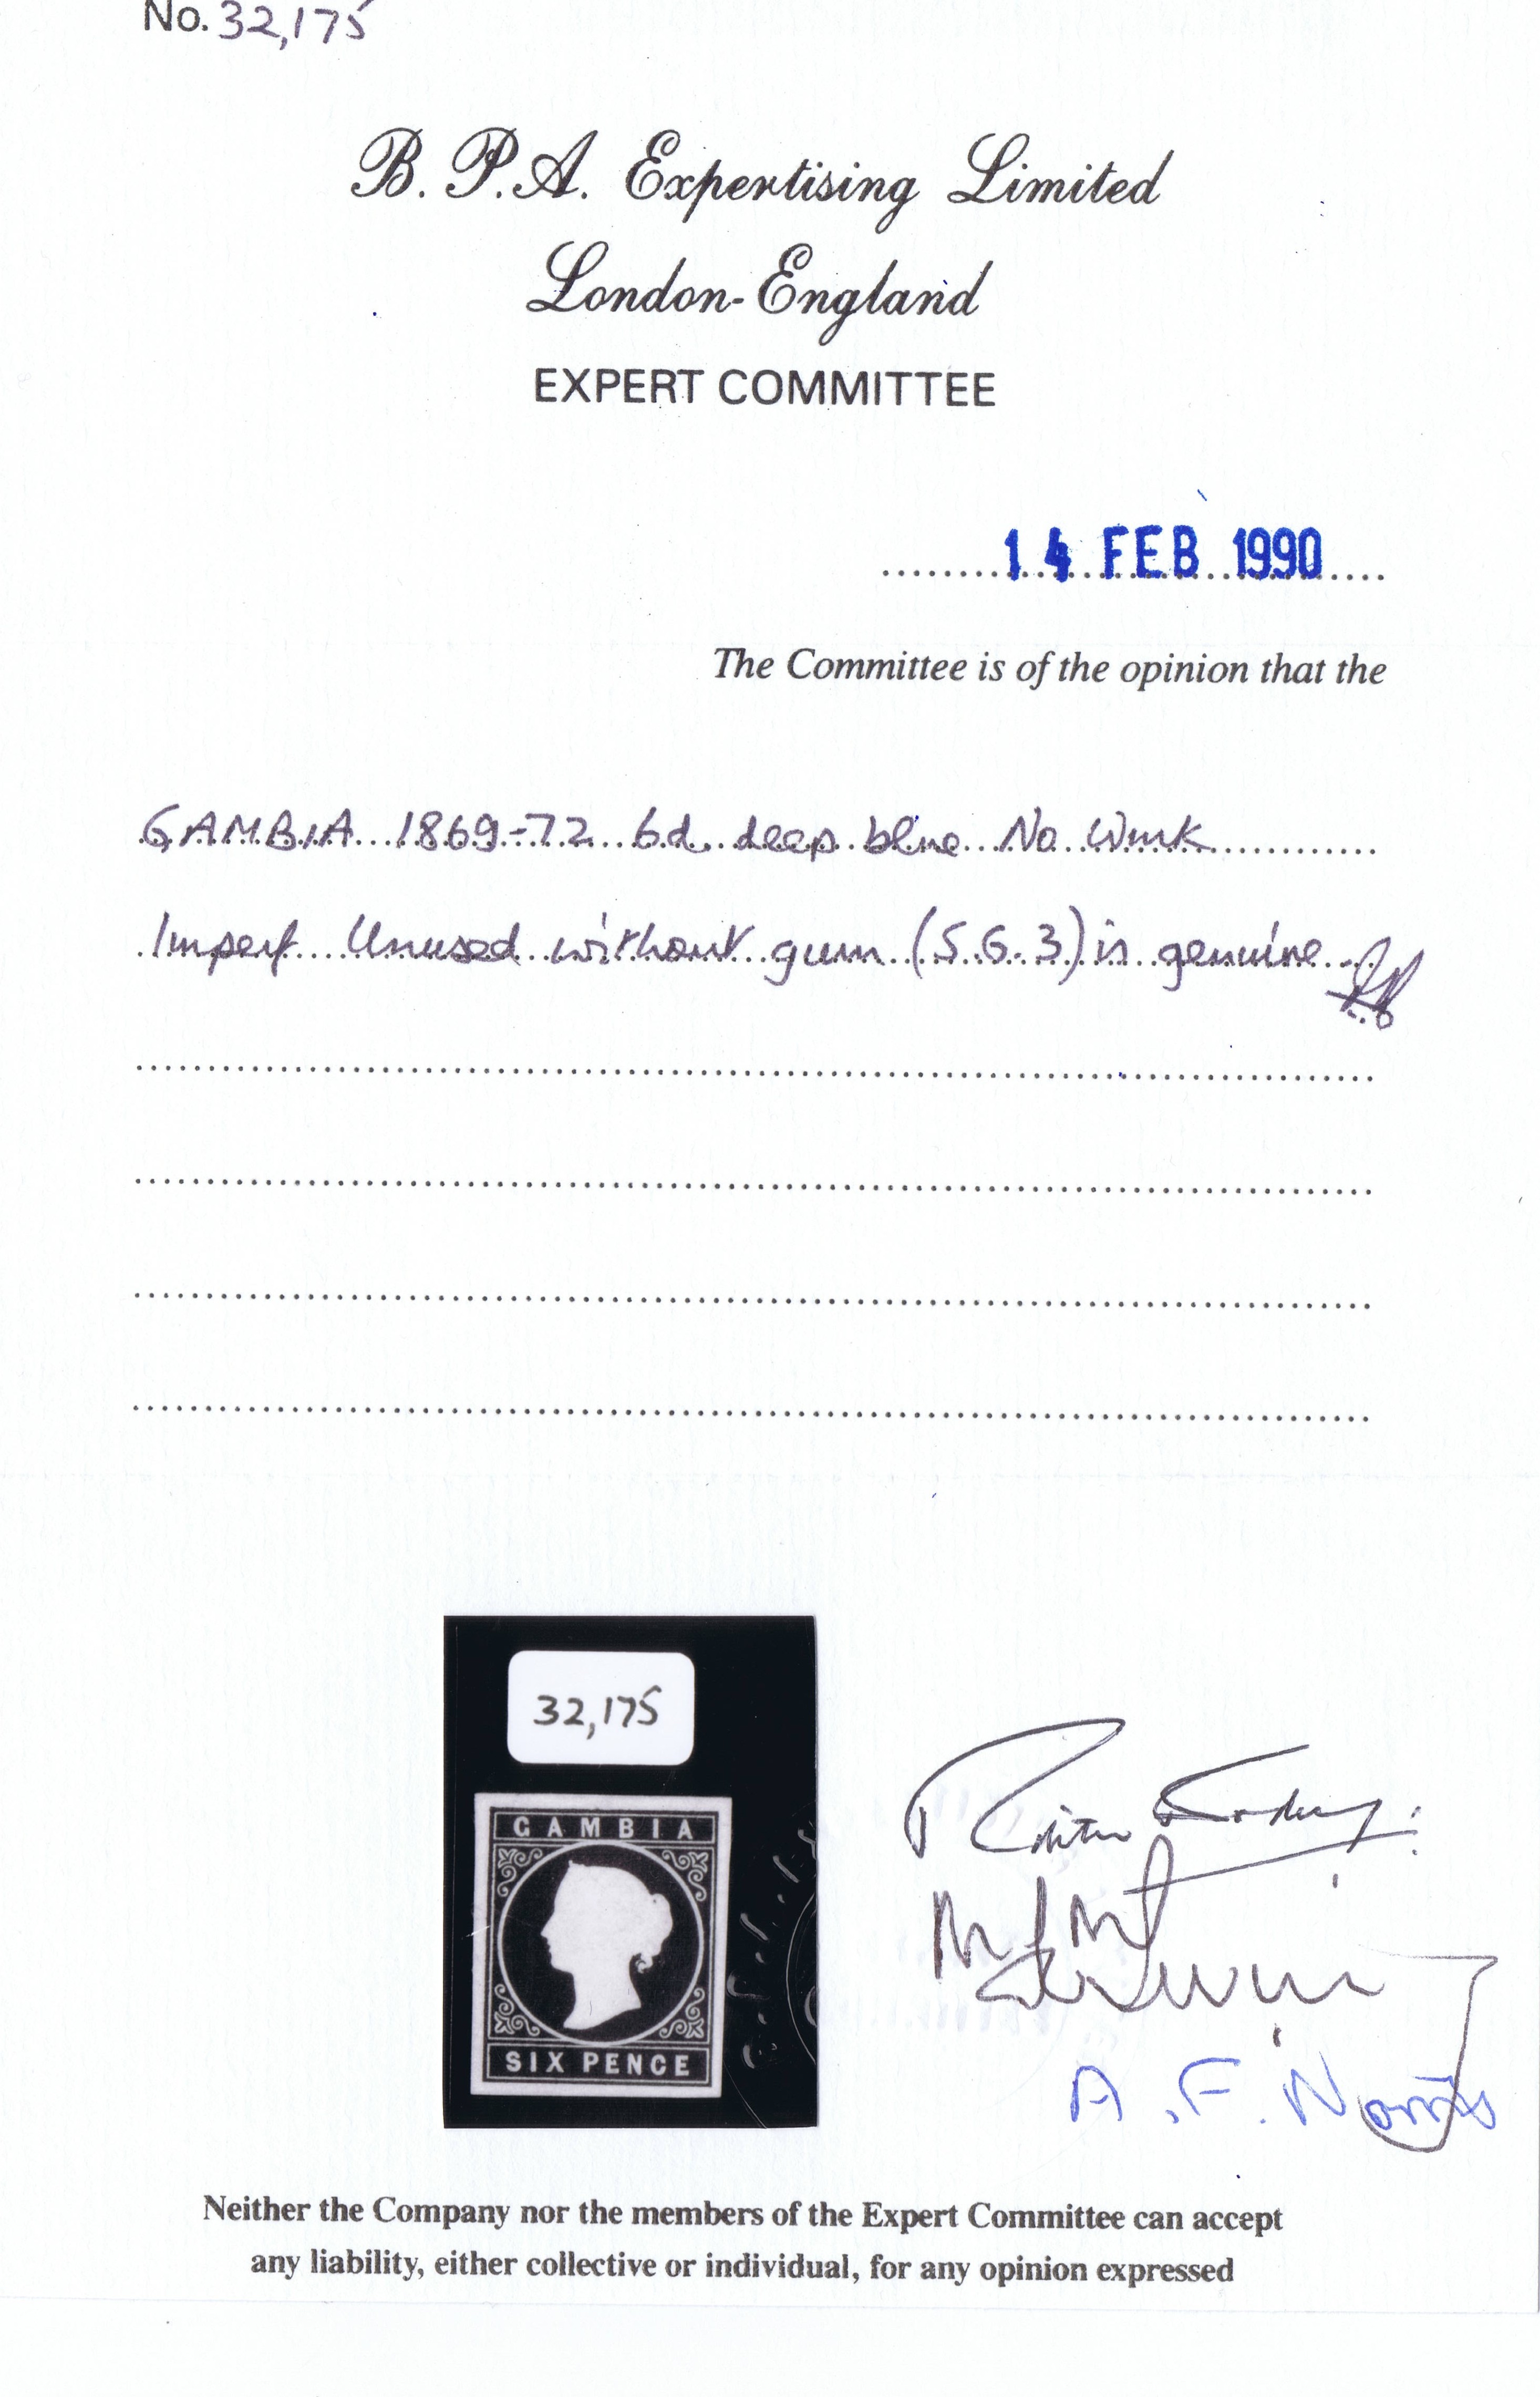 No. 32,175
B. P. A. Expertising Limited
London-England
EXPERT COMMITTEE
14 FEB 1990
The Committee is of the opinion that the
GAMBIA 1869-72 6d. deep blue No Wmk
Imperf Unused without gum (S.G.3) is genuine
32,175
GAMBIA
SIX PENCE
A. F. Norris
Neither the Company nor the members of the Expert Committee can accept
any liability, either collective or individual, for any opinion expressed